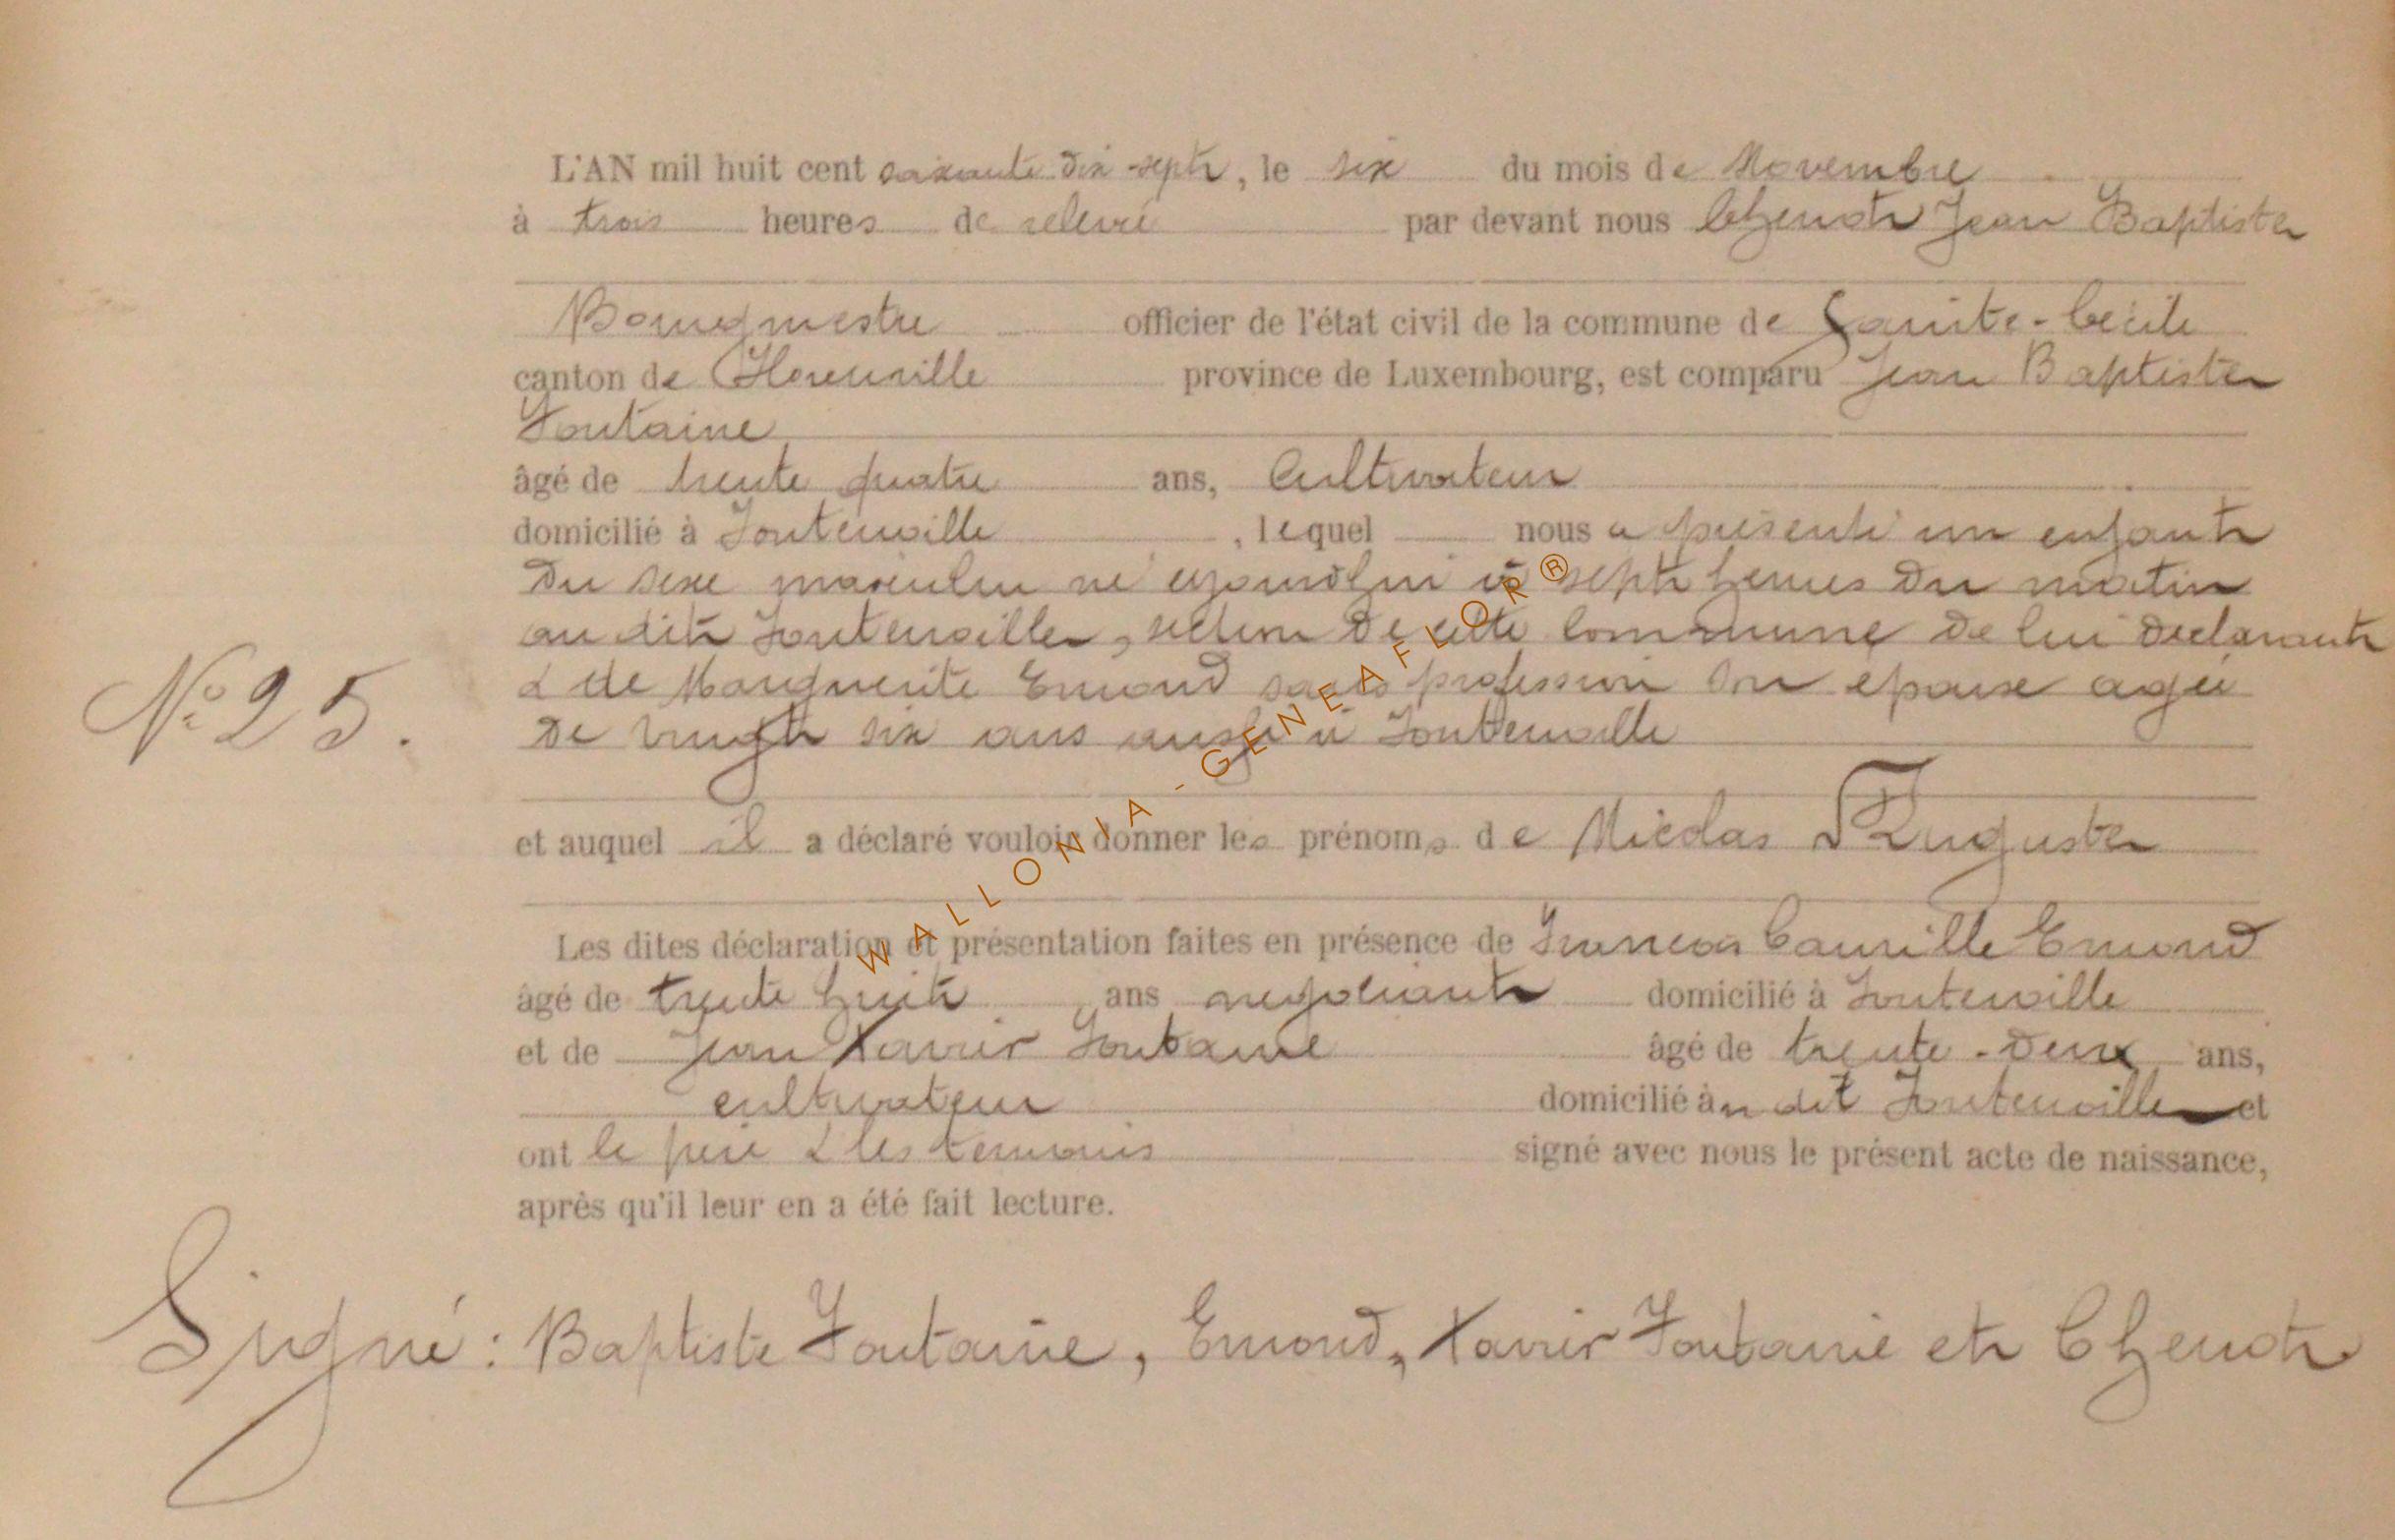 L'AN mil huit cent soixante dix-sept, le six du mois de Novembre
à trois heures de relevé par devant nous Chenot Jean Baptiste
Bourgmestre officier de l'état civil de la commune de Sainte-Cécile
canton de Florenville province de Luxembourg, est comparu Jean Baptiste
Fontaine
âgé de trente quatre ans, Cultivateur
domicilié à Fontenoille, lequel nous a présenté un enfant
du sexe masculin né aujourd'hui à sept heures du matin
au dit Fontenoille, section de cette commune de lui déclarant
& de Marguerite Emond sans profession son épouse agée
N° 25.
de vingt six ans aussi à Fontenoille
et auquel il a déclaré vouloir donner les prénoms de Nicolas Auguste
Les dites déclaration et présentation faites en présence de Francois Camille Emond
âgé de trente huit ans negociant domicilié à Fontenoille
et de Jean Xavier Fontaine âgé de trente-deux ans,
cultivateur domicilié au dit Fontenoille et
ont le père & les temoins signé avec nous le présent acte de naissance,
après qu'il leur en a été fait lecture.
Signé : Baptiste Fontaine, Emond, Xavier Fontaine et Chenot
WALLONIA - GENEAFLOR®